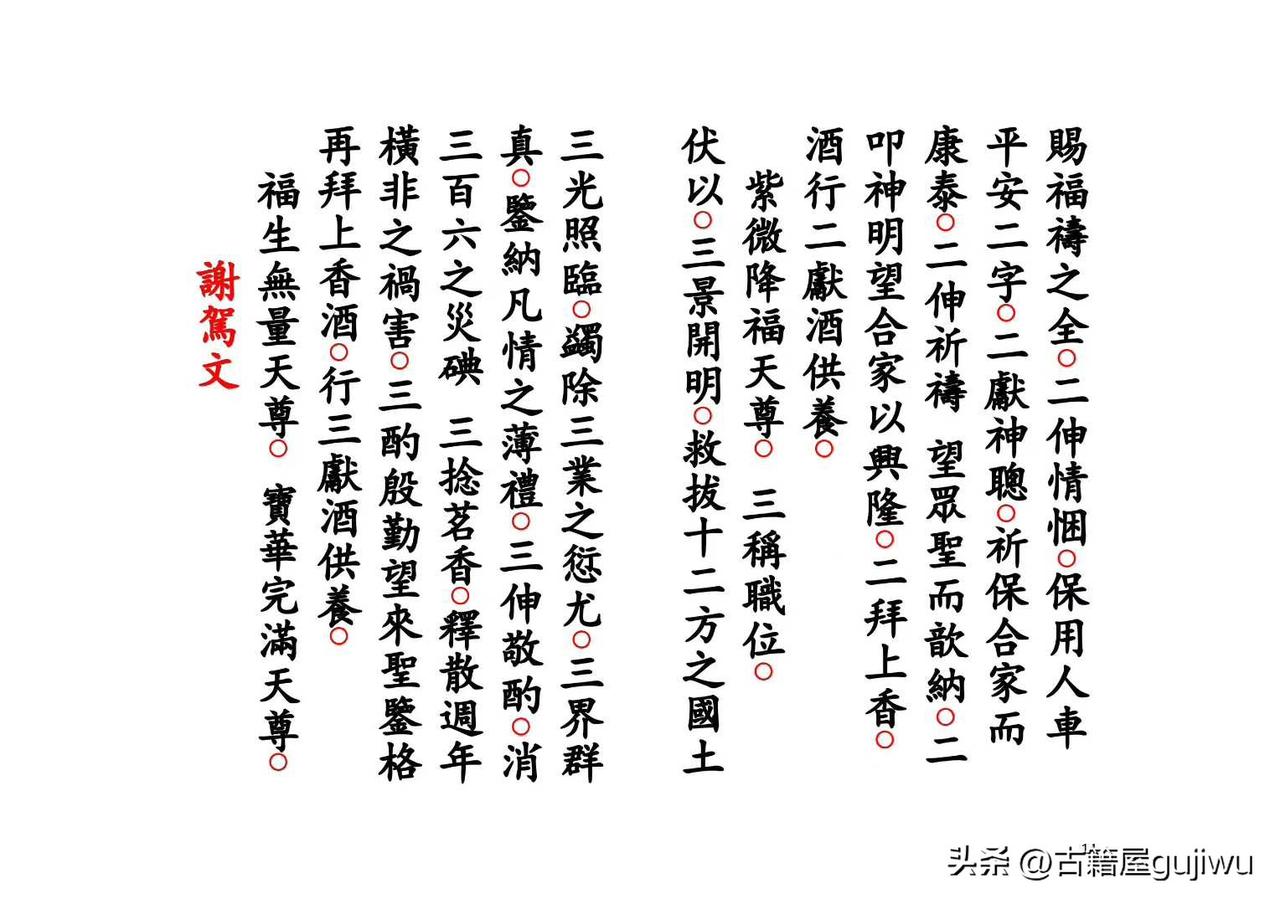 賜福禱之全○二伸情悃○保用人車
平安二字○二獻神聰○祈保合家而
康泰○二伸祈禱 望眾聖而歆納○二
叩神明望合家以興隆○二拜上香○
酒行二獻酒供養○
紫微降福天尊○ 三稱職位○
伏以○三景開明○救拔十二方之國土
三光照臨○蠲除三業之愆尤○三界群
真○鑒納凡情之薄禮○三伸敬酌○消
三百六之災碘 三捻茗香○釋散週年
橫非之禍害○三酌殷勤望來聖鑒格
再拜上香酒○行三獻酒供養○
福生無量天尊○ 寶華完滿天尊○
謝駕文
头条 @古籍屋gujiwu